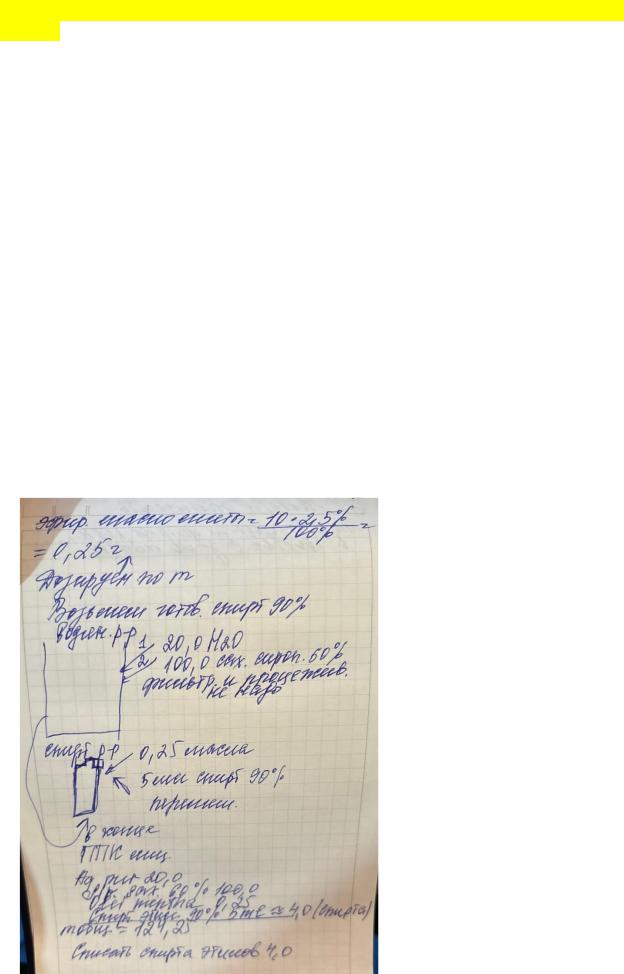 эфир. масло мяты = 10 • 2,5% / 100% =
= 0,25 г
Дозируем по m
Возьмем готов. спирт 90%
водн. р-р
1 20,0 H2O
2 100,0 сах. сироп. 60%
фильтр. и процежив.
не надо
спирт р-р
0,25 масла
5 мл спирт 90%
перемеш.
в конце
ППК лиц.
Aq. pur 20,0
Sir. sach. 60% 100,0
Olei menthae 0,25
Спирт этил. 90% 5 ml ≈ 4,0 (спирта)
mобщ = 124,25
Списать спирта этилов 4,0